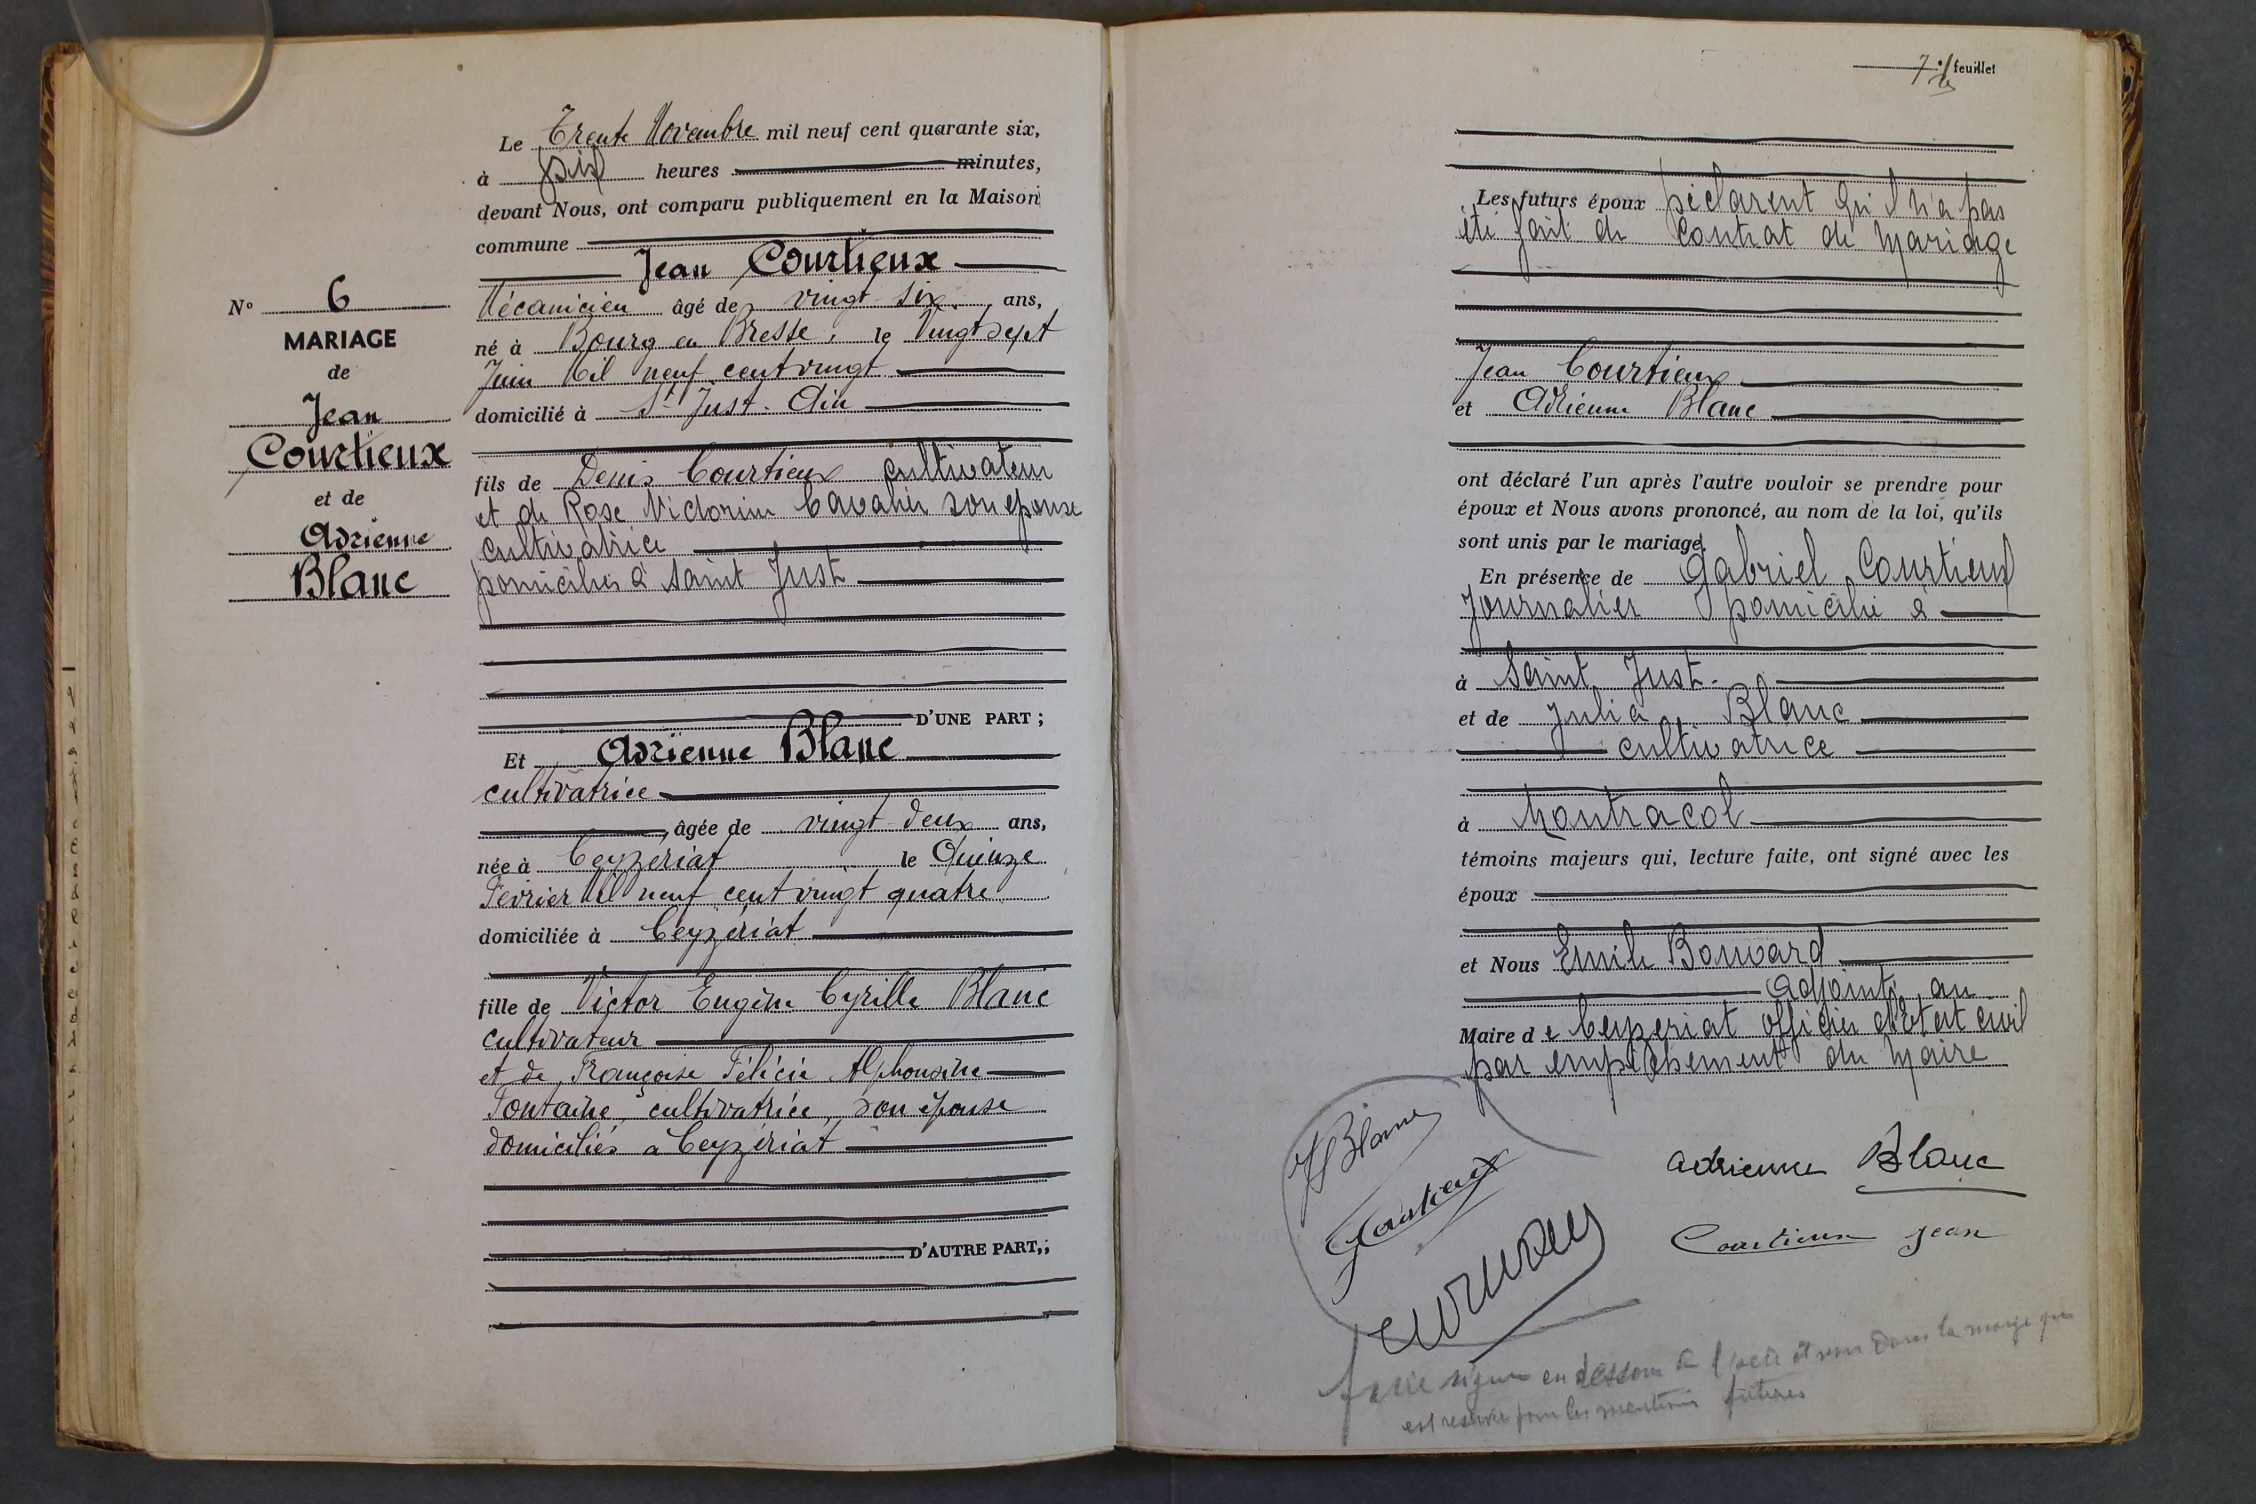 Le Trente Novembre mil neuf cent quarante six,
à dix heures minutes,
devant Nous, ont comparu publiquement en la Maison
commune
Jean Courtieux
Mécanicien âgé de vingt six ans,
né à Bourg en Bresse, le Vingt sept
Juin Mil neuf cent vingt
domicilié à St Just. Ain
fils de Denis Courtieux cultivateur
et de Rose Victorine Cavalier son épouse
cultivatrice
domiciliés à Saint Just
D'UNE PART ;
Et Adrienne Blanc
cultivatrice
âgée de vingt deux ans,
née à Ceyzériat le Quinze
Février Mil neuf cent vingt quatre
domiciliée à Ceyzériat
fille de Victor Eugène Cyrille Blanc
cultivateur
et de Françoise Félicie Alphonsine
Fontaine, cultivatrice, son épouse
domiciliés à Ceyzériat
D'AUTRE PART,;
N° 6
MARIAGE
de
Jean
Courtieux
et de
Adrienne
Blanc
7 e feuillet
Les futurs époux déclarent qu'il n'a pas
été fait de contrat de mariage
Jean Courtieux
et Adrienne Blanc
ont déclaré l'un après l'autre vouloir se prendre pour
époux et Nous avons prononcé, au nom de la loi, qu'ils
sont unis par le mariage.
En présence de Gabriel Courtieux
Journalier domicilié à
à Saint Just.
et de Julia Blanc
cultivatrice
à Montracol
témoins majeurs qui, lecture faite, ont signé avec les
époux
et Nous Emile Bouvard
adjoint au
Maire de Ceyzeriat officier d'état civil
par empêchement du Maire
J Blanc
Courtieux
Adrienne Blanc
Courtieux Jean
faire signer en dessous de l'acte et non dans la marge qui
est réservée pour les mentions futures